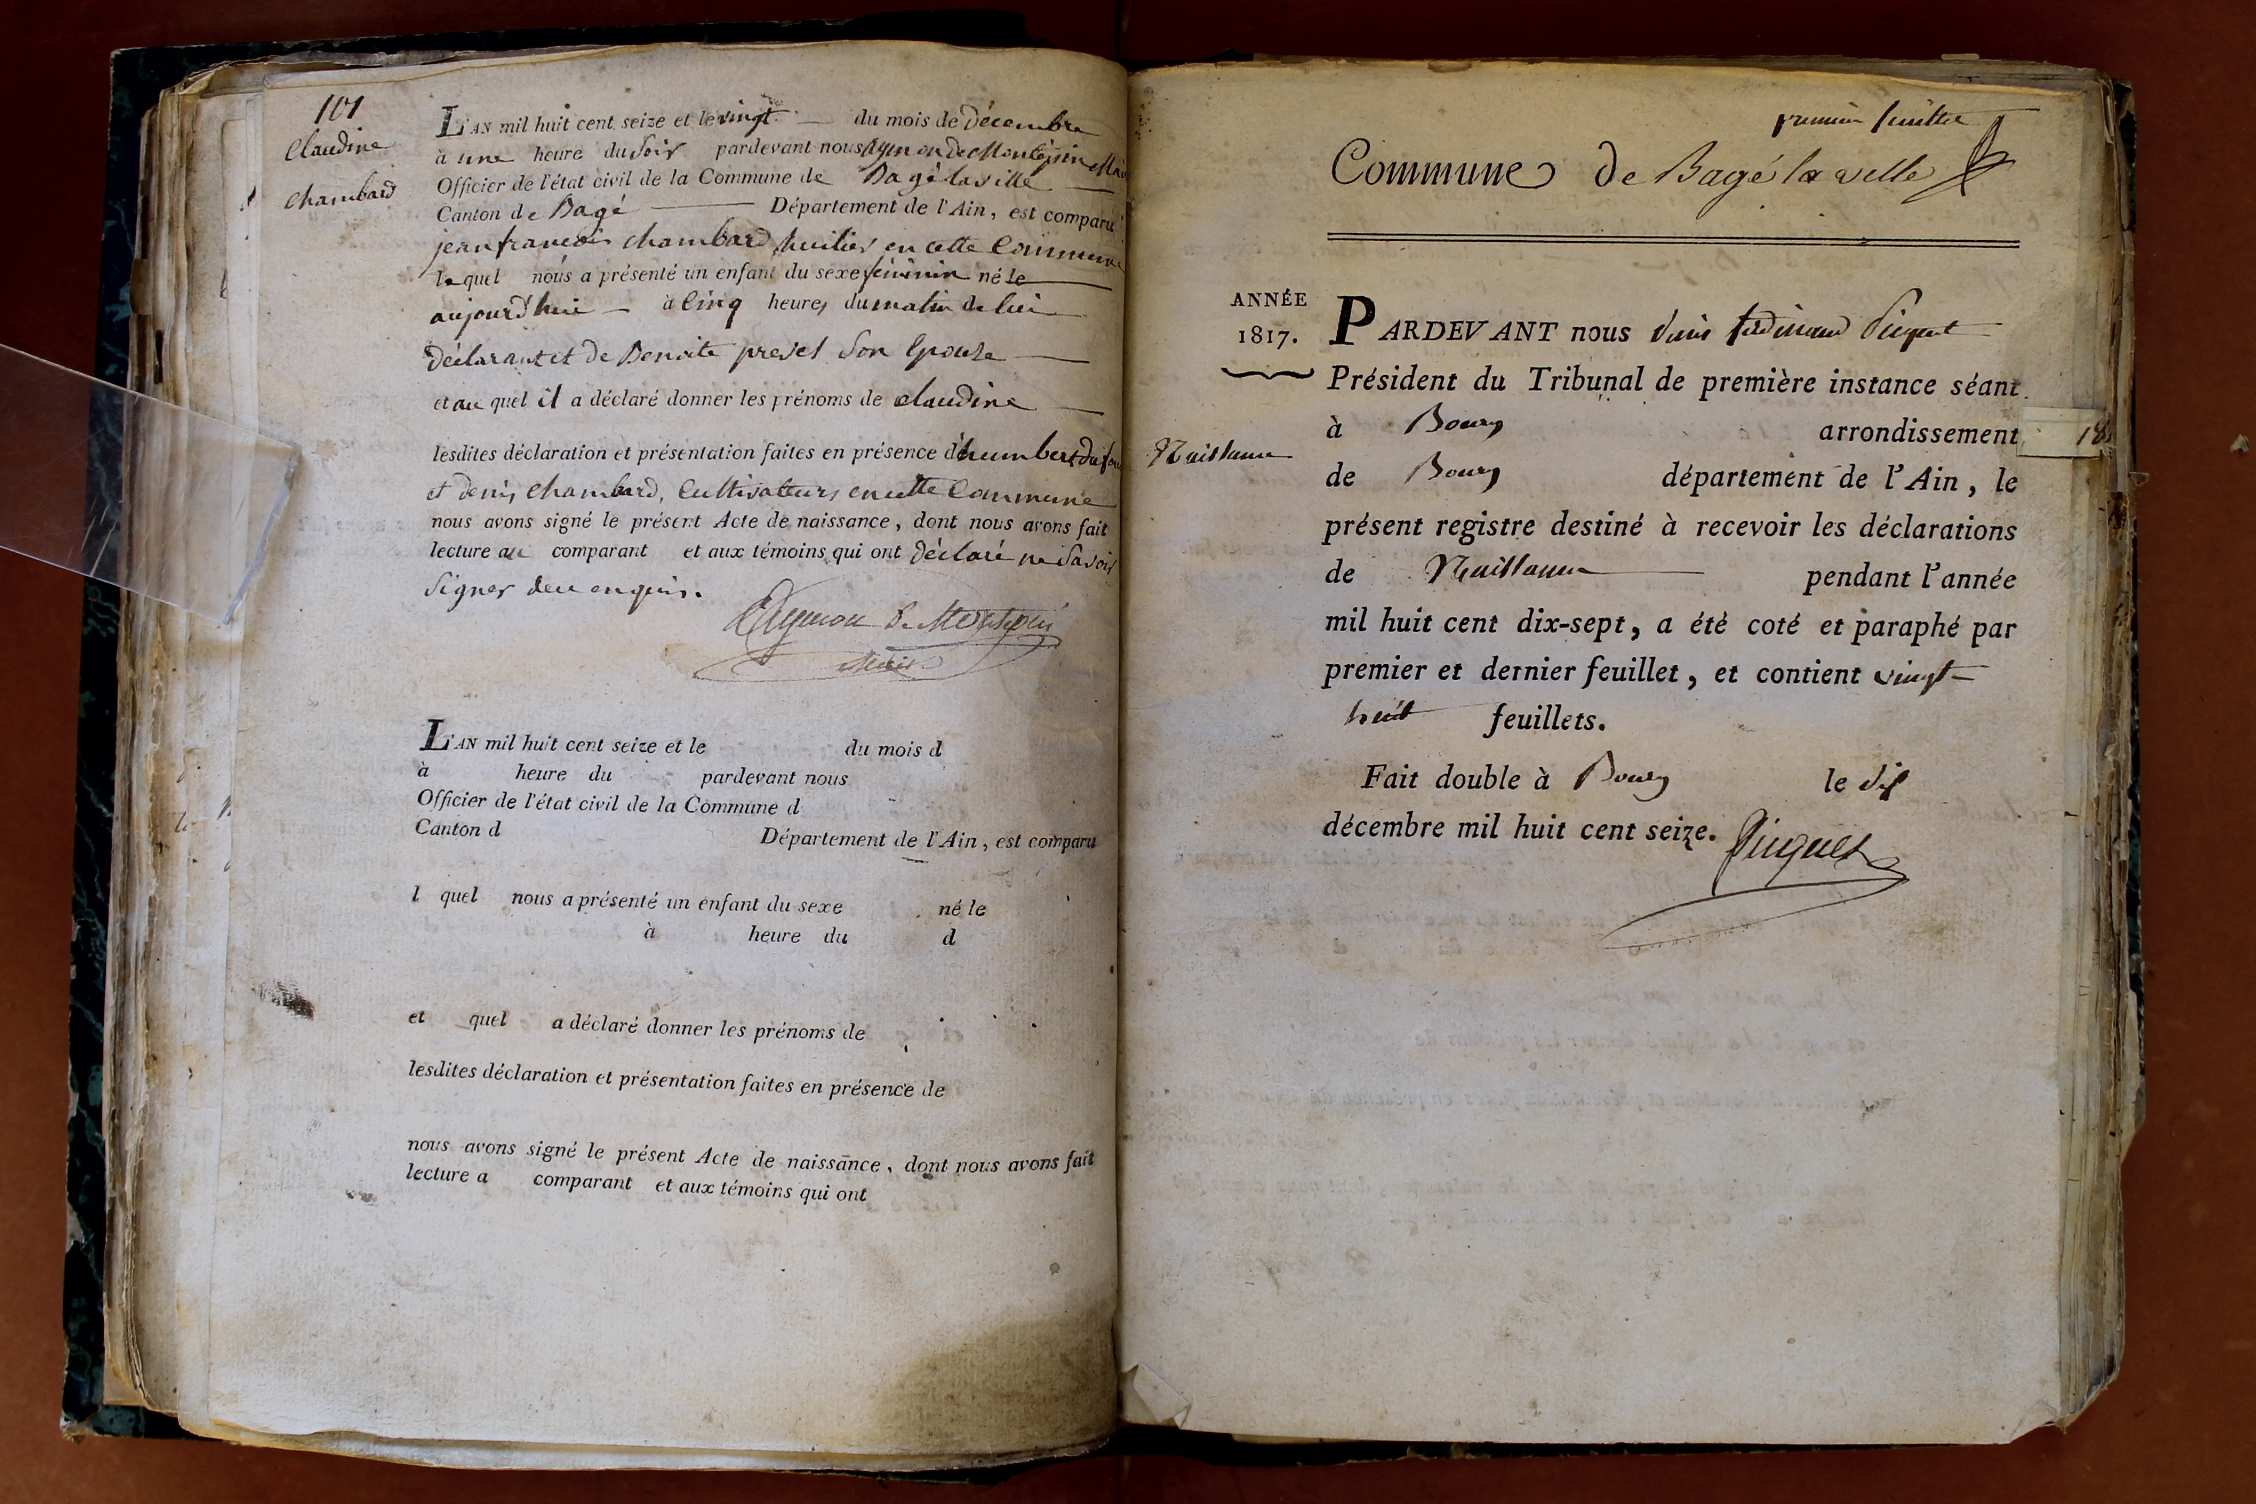 101
Claudine
Chambard
L'AN mil huit cent seize et le vingt du mois de Décembre
à une heure du Soir pardevant nous Aymon de Montépin Mai
Officier de l'état civil de la Commune de Bagé la ville
Canton de Bagé Département de l'Ain, est comparu
jean francois Chambard huilier en cette Commune
lequel nous a présenté un enfant du sexe féminin né le
aujourd'hui à Cinq heures du matin de lui
déclarant et de Benoite prevel Son Epouse
et au quel il a déclaré donner les prénoms de Claudine
lesdites déclaration et présentation faites en présence d'humbert
et denis Chambard, Cultivateurs en cette Commune
nous avons signé le présent Acte de naissance, dont nous avons fait
lecture au comparant et aux témoins qui ont Déclaré ne Savoir
Signer de ce enquis.
Aymon de Montépin
Maire
L'AN mil huit cent seize et le du mois d
à heure du pardevant nous
Officier de l'état civil de la Commune d
Canton d Département de l'Ain, est comparu
l quel nous a présenté un enfant du sexe né le
à heure du d
et quel a déclaré donner les prénoms de
lesdites déclaration et présentation faites en présence de
nous avons signé le présent Acte de naissance, dont nous avons fait
lecture a comparant et aux témoins qui ont
premier feuillet
Commune de Bagé la ville
ANNÉE
1817.
Naissance
PARDEVANT nous ferdinand Picquet
Président du Tribunal de première instance séant
à Bourg arrondissement
de Bourg département de l'Ain, le
présent registre destiné à recevoir les déclarations
de Naissance pendant l'année
mil huit cent dix-sept, a été coté et paraphé par
premier et dernier feuillet, et contient vingt
huit feuillets.
Fait double à Bourg le dix
décembre mil huit cent seize.
Picquet
18